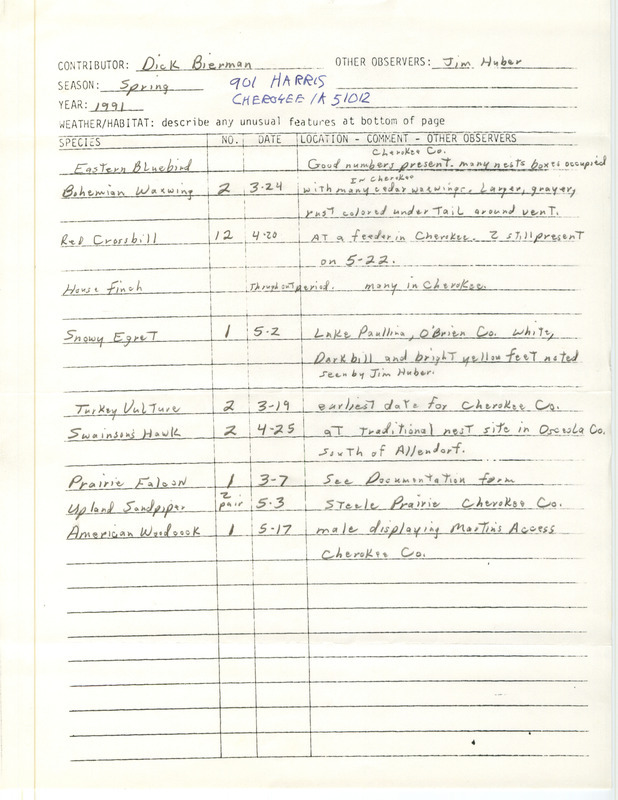 CONTRIBUTOR: Dick Bierman OTHER OBSERVERS: Jim Huber
SEASON: Spring 901 HARRIS
YEAR: 1991 CHEROKEE IA 51012
WEATHER/HABITAT: describe any unusual features at bottom of page
SPECIES NO. DATE LOCATION - COMMENT - OTHER OBSERVERS
Cherokee Co.
Eastern Bluebird Good numbers present. many nests boxes occupied
In Cherokee
Bohemian Waxwing 2 3-24 with many cedar waxwings. Larger, grayer,
rust colored under tail around vent.
Red Crossbill 12 4-20 AT a feeder in Cherokee. 2 still present
on 5-22.
House Finch Throughout period. many in Cherokee.
Snowy Egret 1 5-2 Lake Paullina, O'Brien Co. White,
Dark bill and bright yellow feet noted
seen by Jim Huber.
Turkey Vulture 2 3-19 earliest date for Cherokee Co.
Swainsons Hawk 2 4-25 at traditional nest site in Osceola Co.
South of Allendorf.
Prairie Falcon 1 3-7 See Documentation form
Upland Sandpiper 2 pair 5-3 Steele Prairie Cherokee Co.
American Woodcock 1 5-17 male displaying Martins Access
Cherokee Co.